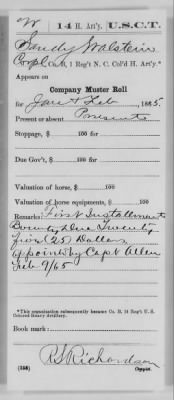 W 14 H. Art'y. U.S.C.T.
Sandy Walstein
Corpl Co. B, 1 Reg't N. C. Col'd H. Art'y.*
Appears on
Company Muster Roll
for Jan & Feb, 1865
Present or absent Present
Stoppage, $ 100 for
Due Gov't, $ 100 for
Valuation of horse, $ 100
Valuation of horse equipments, $ 100
Remarks: First Installment
Bounty due Twenty
five (25) Dollars
Appoint by Capt Allen
Feb 7/65
*This organization subsequently became Co. B, 14 Reg't U. S.
Colored Heavy Artillery.
Book mark:
R S Richardson
(358) Copyist.